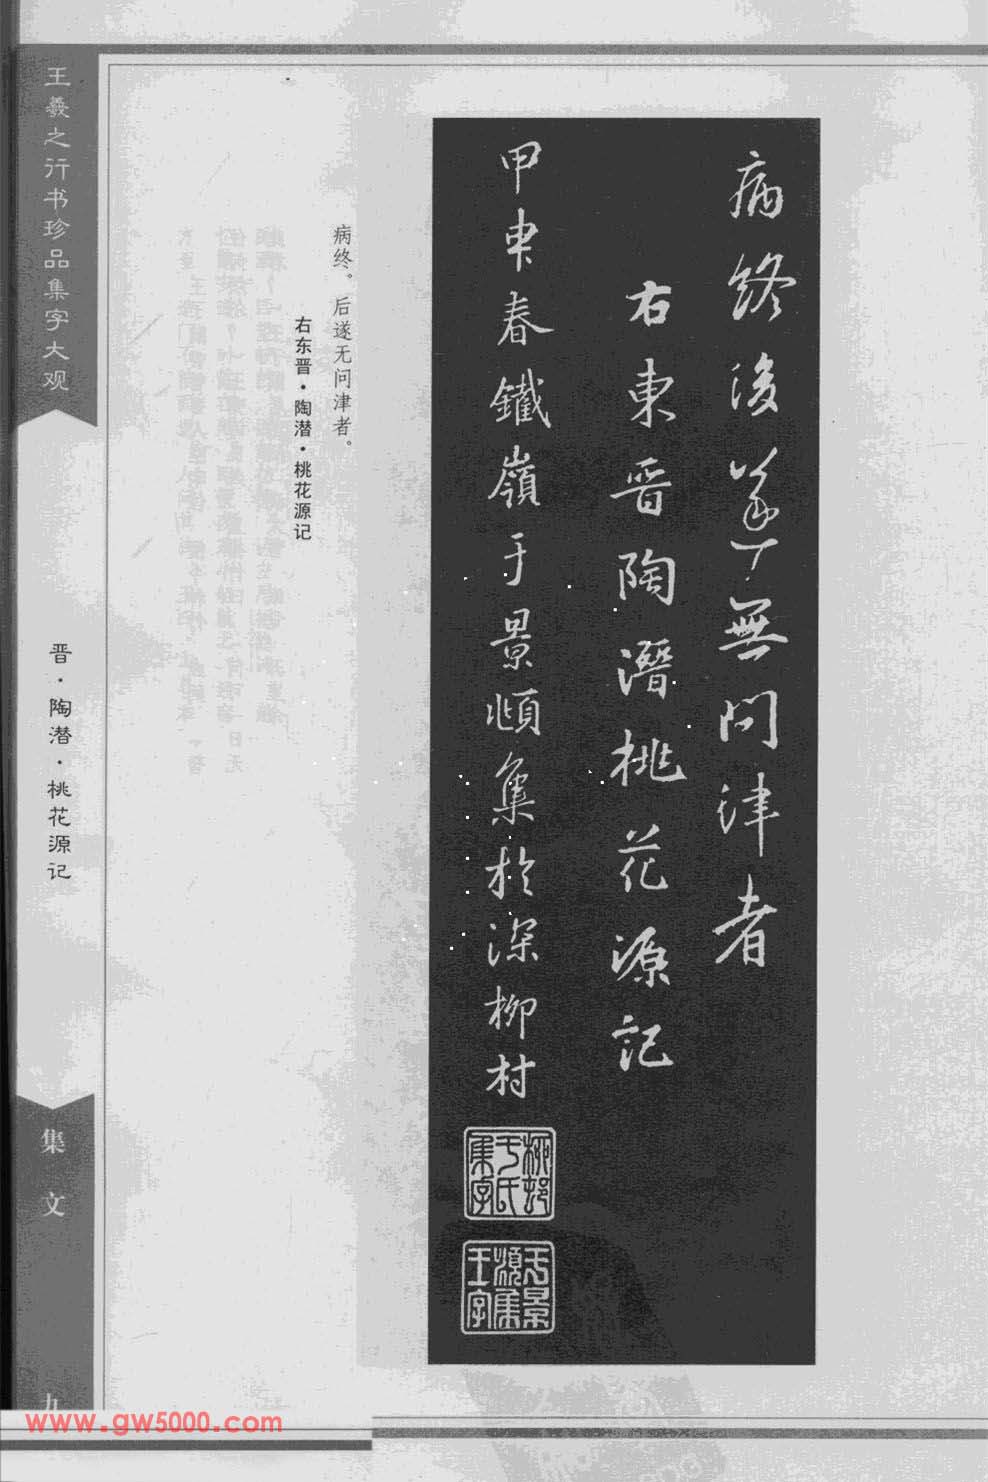 病終後遂無問津者
右東晋陶潛桃花源記
甲申春鐵嶺于景頫集於深柳村
柳邨于氏集字
于景頫集王字
病终。后遂无问津者。
右东晋·陶潜·桃花源记
王羲之行书珍品集字大观
晋·陶潜·桃花源记
集文
九
www.gw5000.com